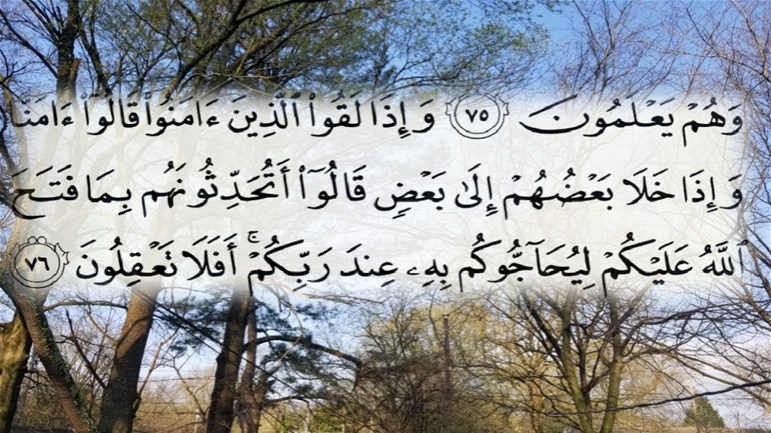 وَهُمْ يَعْلَمُونَ ٧٥ وَإِذَا لَقُوا۟ ٱلَّذِينَ ءَامَنُوا۟ قَالُوٓا۟ ءَامَنَّا
وَإِذَا خَلَا بَعْضُهُمْ إِلَىٰ بَعْضٍ قَالُوٓا۟ أَتُحَدِّثُونَهُم بِمَا فَتَحَ
ٱللَّهُ عَلَيْكُمْ لِيُحَآجُّوكُم بِهِۦ عِندَ رَبِّكُمْ ۚ أَفَلَا تَعْقِلُونَ ٧٦